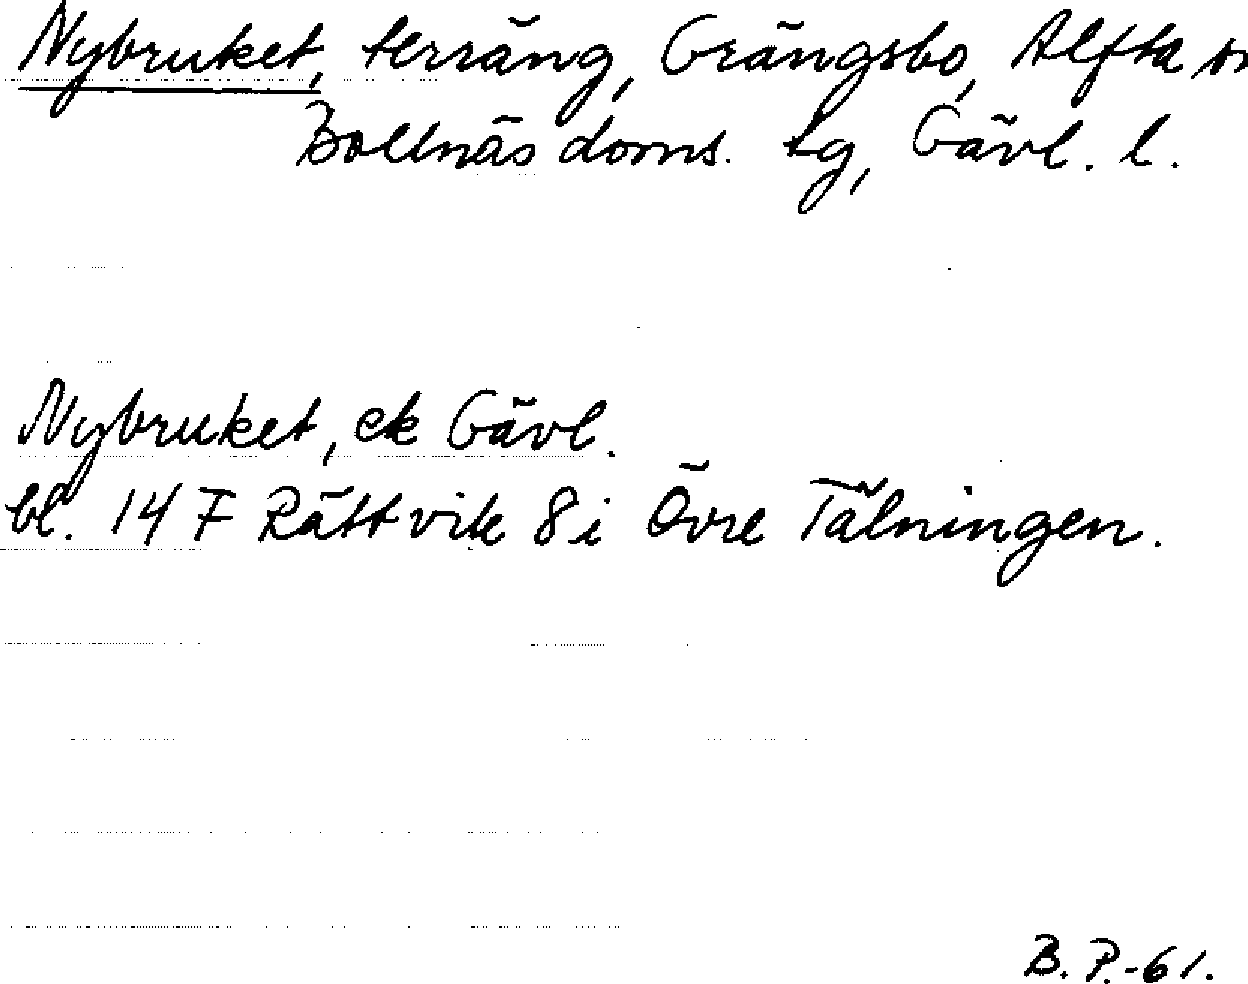 Nybruket, terräng, Grängsbo, Alfta sn
Bollnäs doms. tg, Gävl. l.
Nybruket, ek Gävl.
bl. 14 F Rättvik 8 i Övre Tälningen.
B. P.-61.